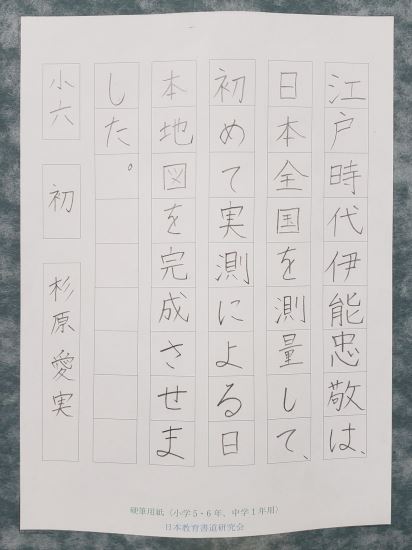 江戸時代伊能忠敬は、
日本全国を測量して、
初めて実測による日
本地図を完成させま
した。
小六 初 杉原愛実
硬筆用紙（小学5・6年、中学1年用）
日本教育書道研究会